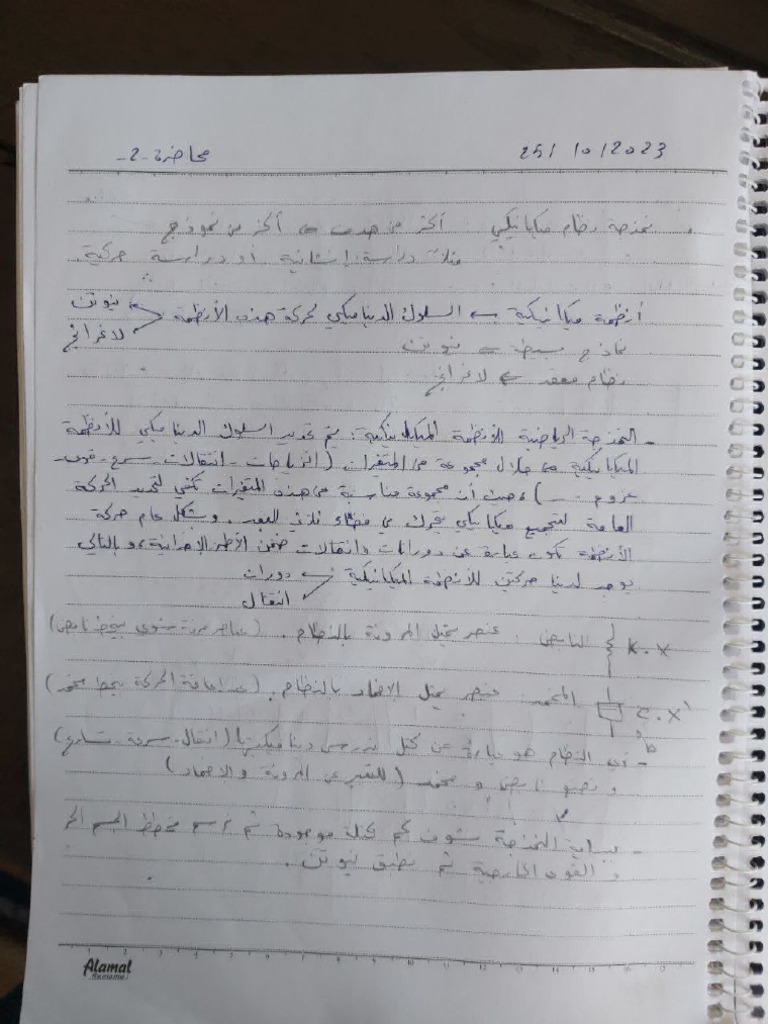 محاضرة -2-
25/10/2023
نمذجة نظام ميكانيكي أكثر من هدف ⇐ أكثر من نموذج
مثلاً دراسة إنشائية أو دراسة حركية.
أنظمة ميكانيكية ← السلوك الديناميكي لحركة هذه الأنظمة
نيوتن
لاغرانج
نماذج بسيطة ← نيوتن
نظام معقد ← لاغرانج
- النمذجة الرياضية للأنظمة الميكانيكية: يتم تحديد السلوك الديناميكي للأنظمة
الميكانيكية من خلال مجموعة من المتغيرات (انزياحات - انتقالات - سرع - قوى -
عزوم - ...) حيث أن مجموعة مناسبة من هذه المتغيرات تكفي لتحديد الحركة
العامة لتجميع ميكانيكي يتحرك في فضاء ثلاثي البعد. وبشكل عام حركة
الأنظمة تكون عبارة عن دورانات وانتقالات ضمن الأطر الإحداثية، وبالتالي
يوجد لدينا حركتين للأنظمة الميكانيكية
دوران
انتقال
K.X النابض: عنصر يمثل المرونة بالنظام. (عناصر مرنة نابض)
C.X' المخمد: عنصر يمثل الإخماد بالنظام. (الحركة مخمد)
b
- النظام هو عبارة عن كتل ندرس ديناميكيتها (انتقال - سرعة - تسارع)
و نابض و مخمد (للتعبير عن المرونة والإخماد)
- بداية النمذجة نشوف كم كتلة موجودة ثم نرسم مخطط الجسم الحر
و القوى الخارجية ثم نطبق نيوتن.
Alamal